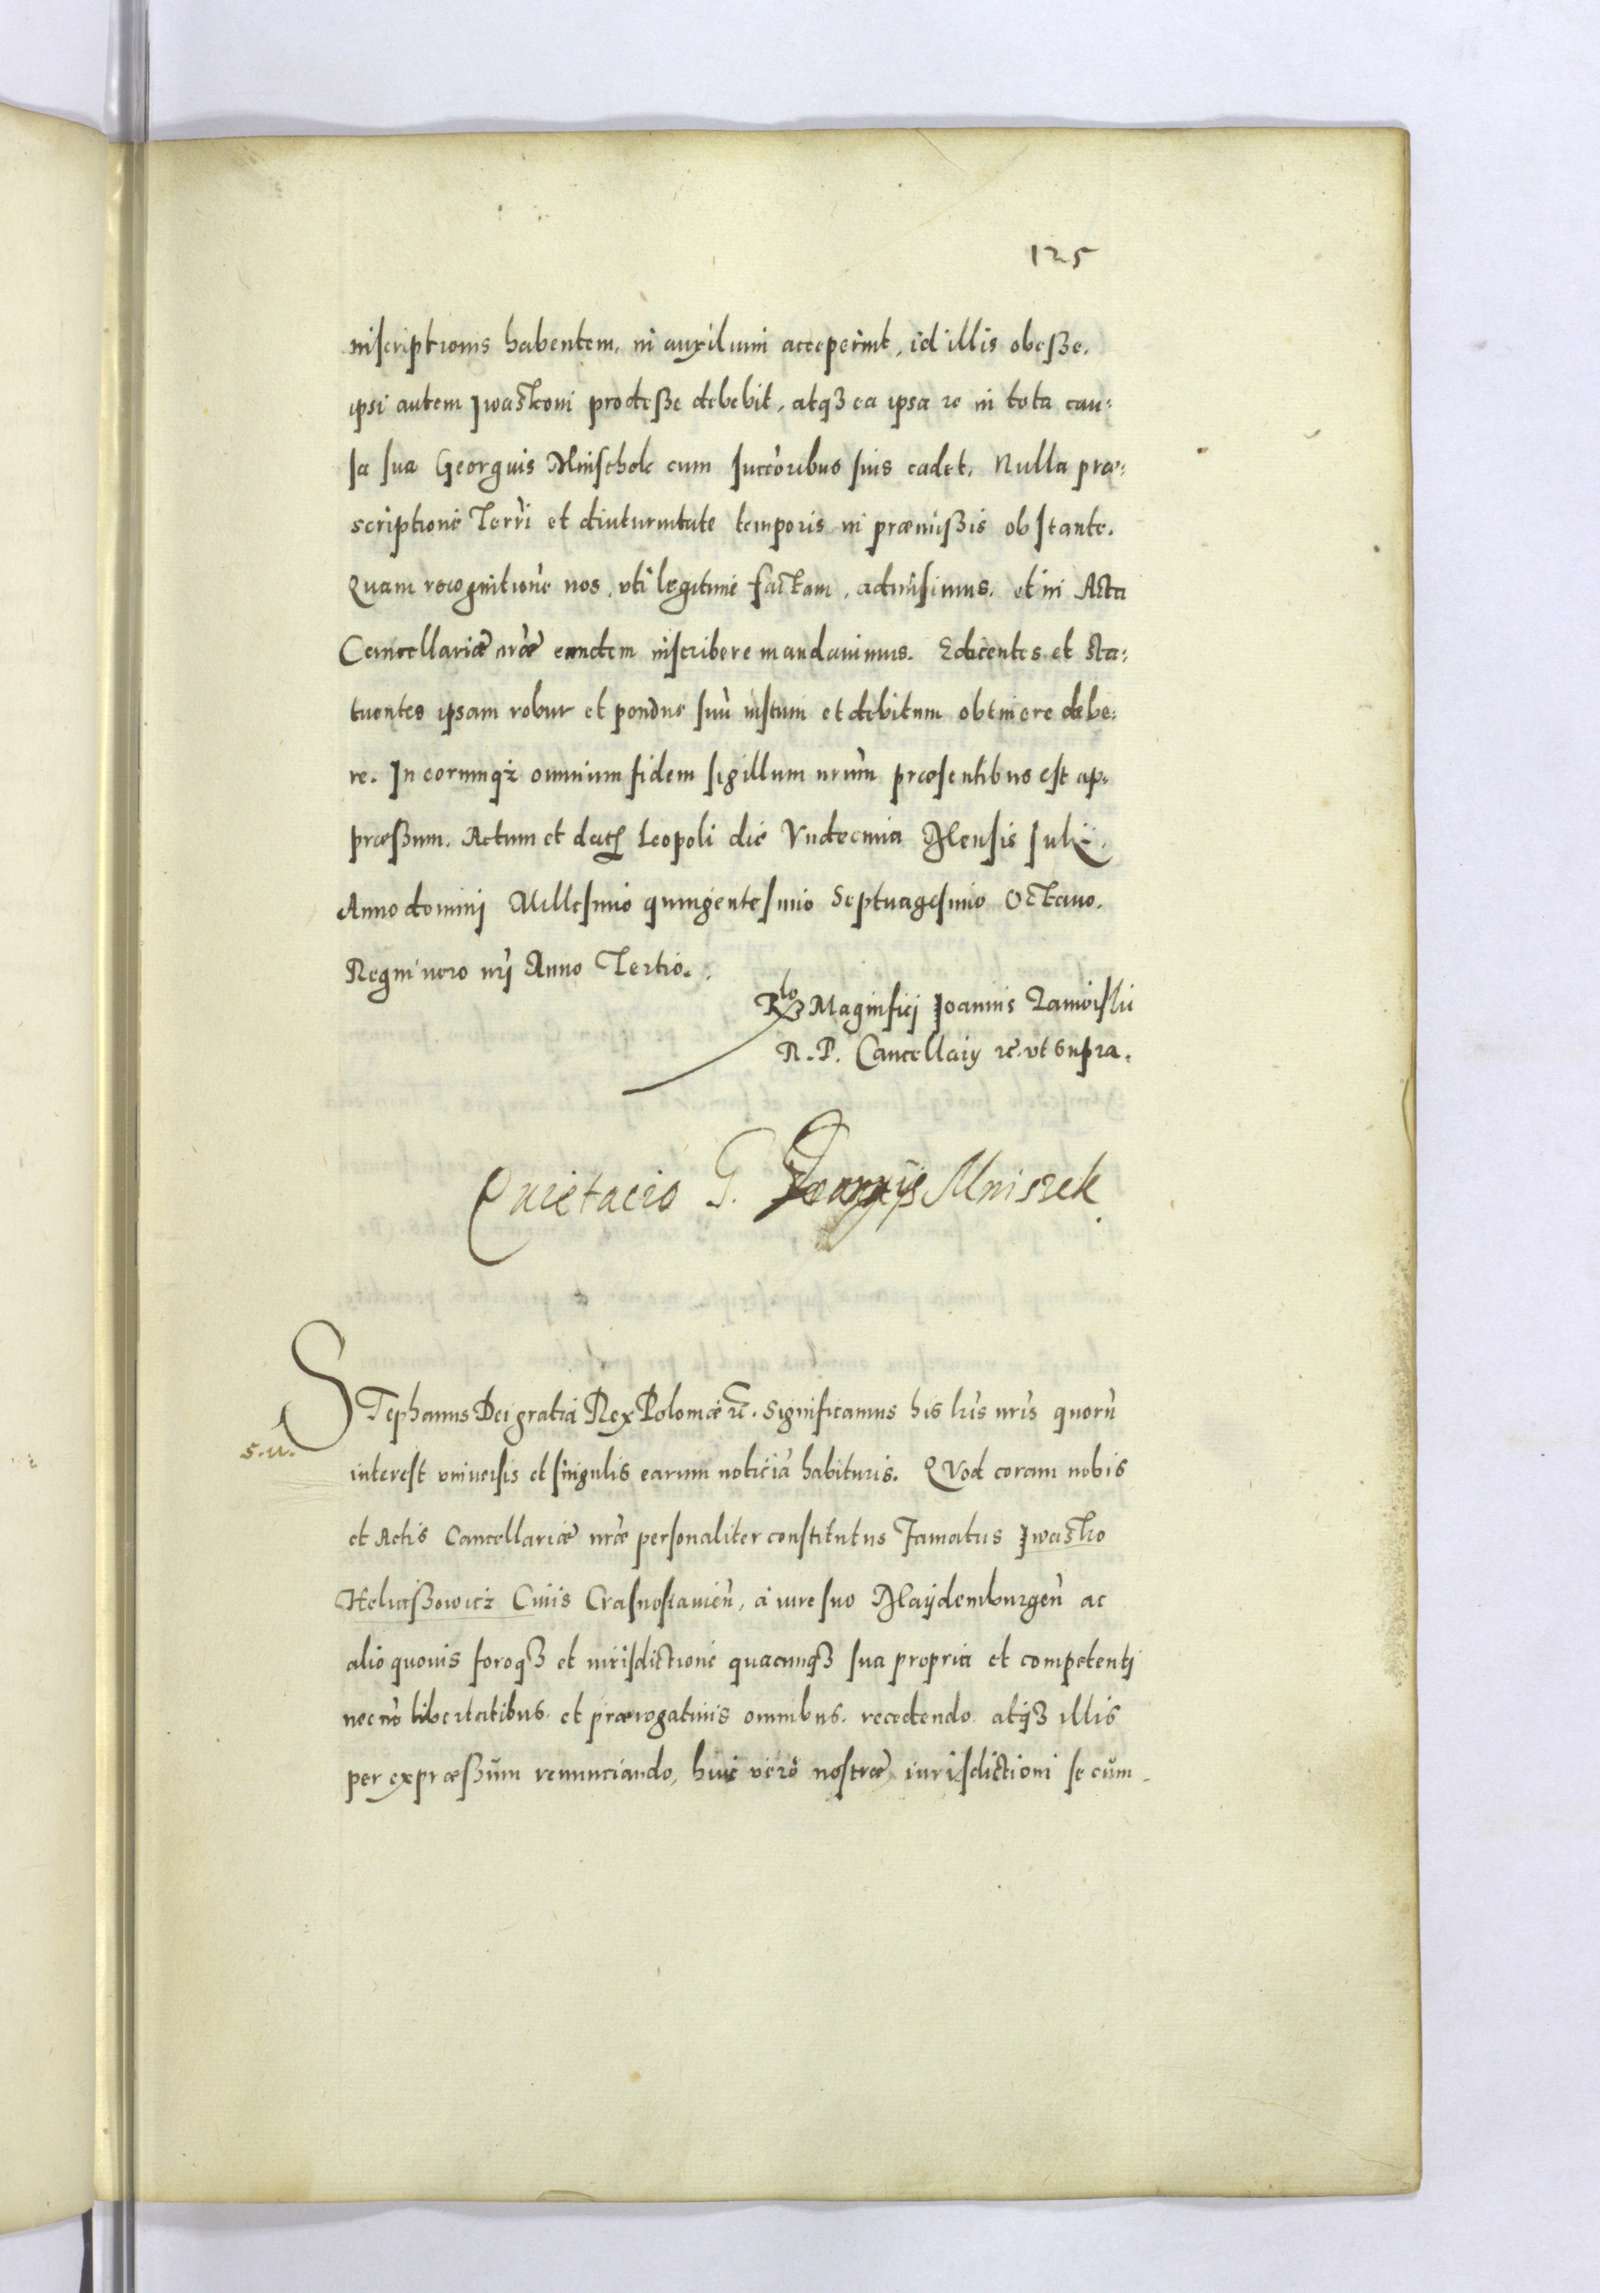 125
inscriptionis habentem, in auxilium acceperint, id illis obesse,
ipsi autem Iwaskoni prodesse debebit, atq3 ea ipsa re in tota cau:
sa sua Georgius Mnischek cum succoribus suis cadet. Nulla præ:
scriptione Terri et diuturnitate temporis in præmissis obstante.
Quam recognitione nos, uti legitime factam, admisimus. et in Acta
Cancellariæ nræ eandem inscribere mandauimus. Edicentes et sta:
tuentes ipsam robur et pondus suu iustum et debitum obtinere debe:
re. In eorumq3 omnium fidem sigillum nrum præsentibus est ap:
præssum. Actum et dat Leopoli die Vndecima Mensis Julij.
Anno domini Millesimo quingentesimo Septuagesimo Octauo.
Regni vero nrj Anno Tertio.
Rlo Magnifici Joannis Zamoiskii
R. P. Cancellarij rc. ut supra.
Quietacio G. Georgijs Mniszek
STephanus Dei gratia Rex Poloniæ rc. Significamus his lris nris quoru
S. U.
interest universis et singulis earum noticia habituris. QVod coram nobis
et Actis Cancellariæ nræ personaliter constitutus Famatus Iwasko
Heliassowicz Civis Crasnostauien, a iure suo Maijdemburgen ac
alio quouis foroq3 et iurisdictione quacunq3 sua propria et competentj
necno libertatibus. et prærogatiuis omnibus. recedendo. atq3 illis
per expræssum renunciando, huic vero nostræ iurisdictioni se cum